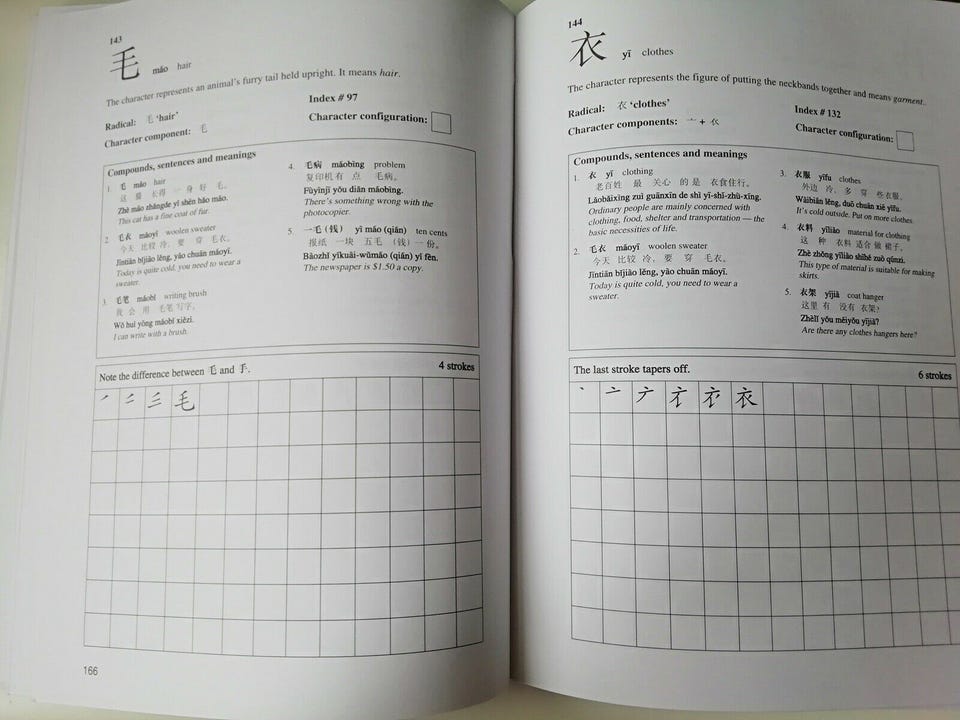 143
毛 máo hair
The character represents an animal's furry tail held upright. It means hair.
Radical: 毛 'hair'
Index # 97
Character component: 毛
Character configuration:
Compounds, sentences and meanings
1. 毛 máo hair
这 猫 长得 一 身 好 毛。
Zhè māo zhǎngde yì shēn hǎo máo.
This cat has a fine coat of fur.
2. 毛衣 máoyī woolen sweater
今天 比较 冷，要 穿 毛衣。
Jīntiān bǐjiào lěng, yào chuān máoyī.
Today is quite cold, you need to wear a
sweater.
3. 毛笔 máobǐ writing brush
我 会 用 毛笔 写字。
Wǒ huì yòng máobǐ xiězì.
I can write with a brush.
4. 毛病 máobìng problem
复印机 有 点 毛病。
Fùyìnjī yǒu diǎn máobìng.
There's something wrong with the
photocopier.
5. 一毛（钱） yì máo (qián) ten cents
报纸 一块 五毛（钱）一份。
Bàozhǐ yíkuài-wǔmáo (qián) yí fèn.
The newspaper is $1.50 a copy.
Note the difference between 毛 and 手.
4 strokes
毛
166
144
衣 yī clothes
The character represents the figure of putting the neckbands together and means garment.
Radical: 衣 'clothes'
Index # 132
Character components: 亠 +
Character configuration:
Compounds, sentences and meanings
1. 衣 yī clothing
老百姓 最 关心 的 是 衣食住行。
Lǎobǎixìng zuì guānxīn de shì yī-shí-zhù-xíng.
Ordinary people are mainly concerned with
clothing, food, shelter and transportation — the
basic necessities of life.
2. 毛衣 máoyī woolen sweater
今天 比较 冷，要 穿 毛衣。
Jīntiān bǐjiào lěng, yào chuān máoyī.
Today is quite cold, you need to wear a
sweater.
3. 衣服 yīfu clothes
外边 冷，多 穿 些衣服。
Wàibiān lěng, duō chuān xiē yīfu.
It's cold outside. Put on more clothes.
4. 衣料 yīliào material for clothing
这 种 衣料 适合 做 裙子。
Zhè zhǒng yīliào shìhé zuò qúnzi.
This type of material is suitable for making
skirts.
5. 衣架 yījià coat hanger
这里 有 没有 衣架？
Zhèlǐ yǒu méiyǒu yījià?
Are there any clothes hangers here?
The last stroke tapers off.
6 strokes
衣